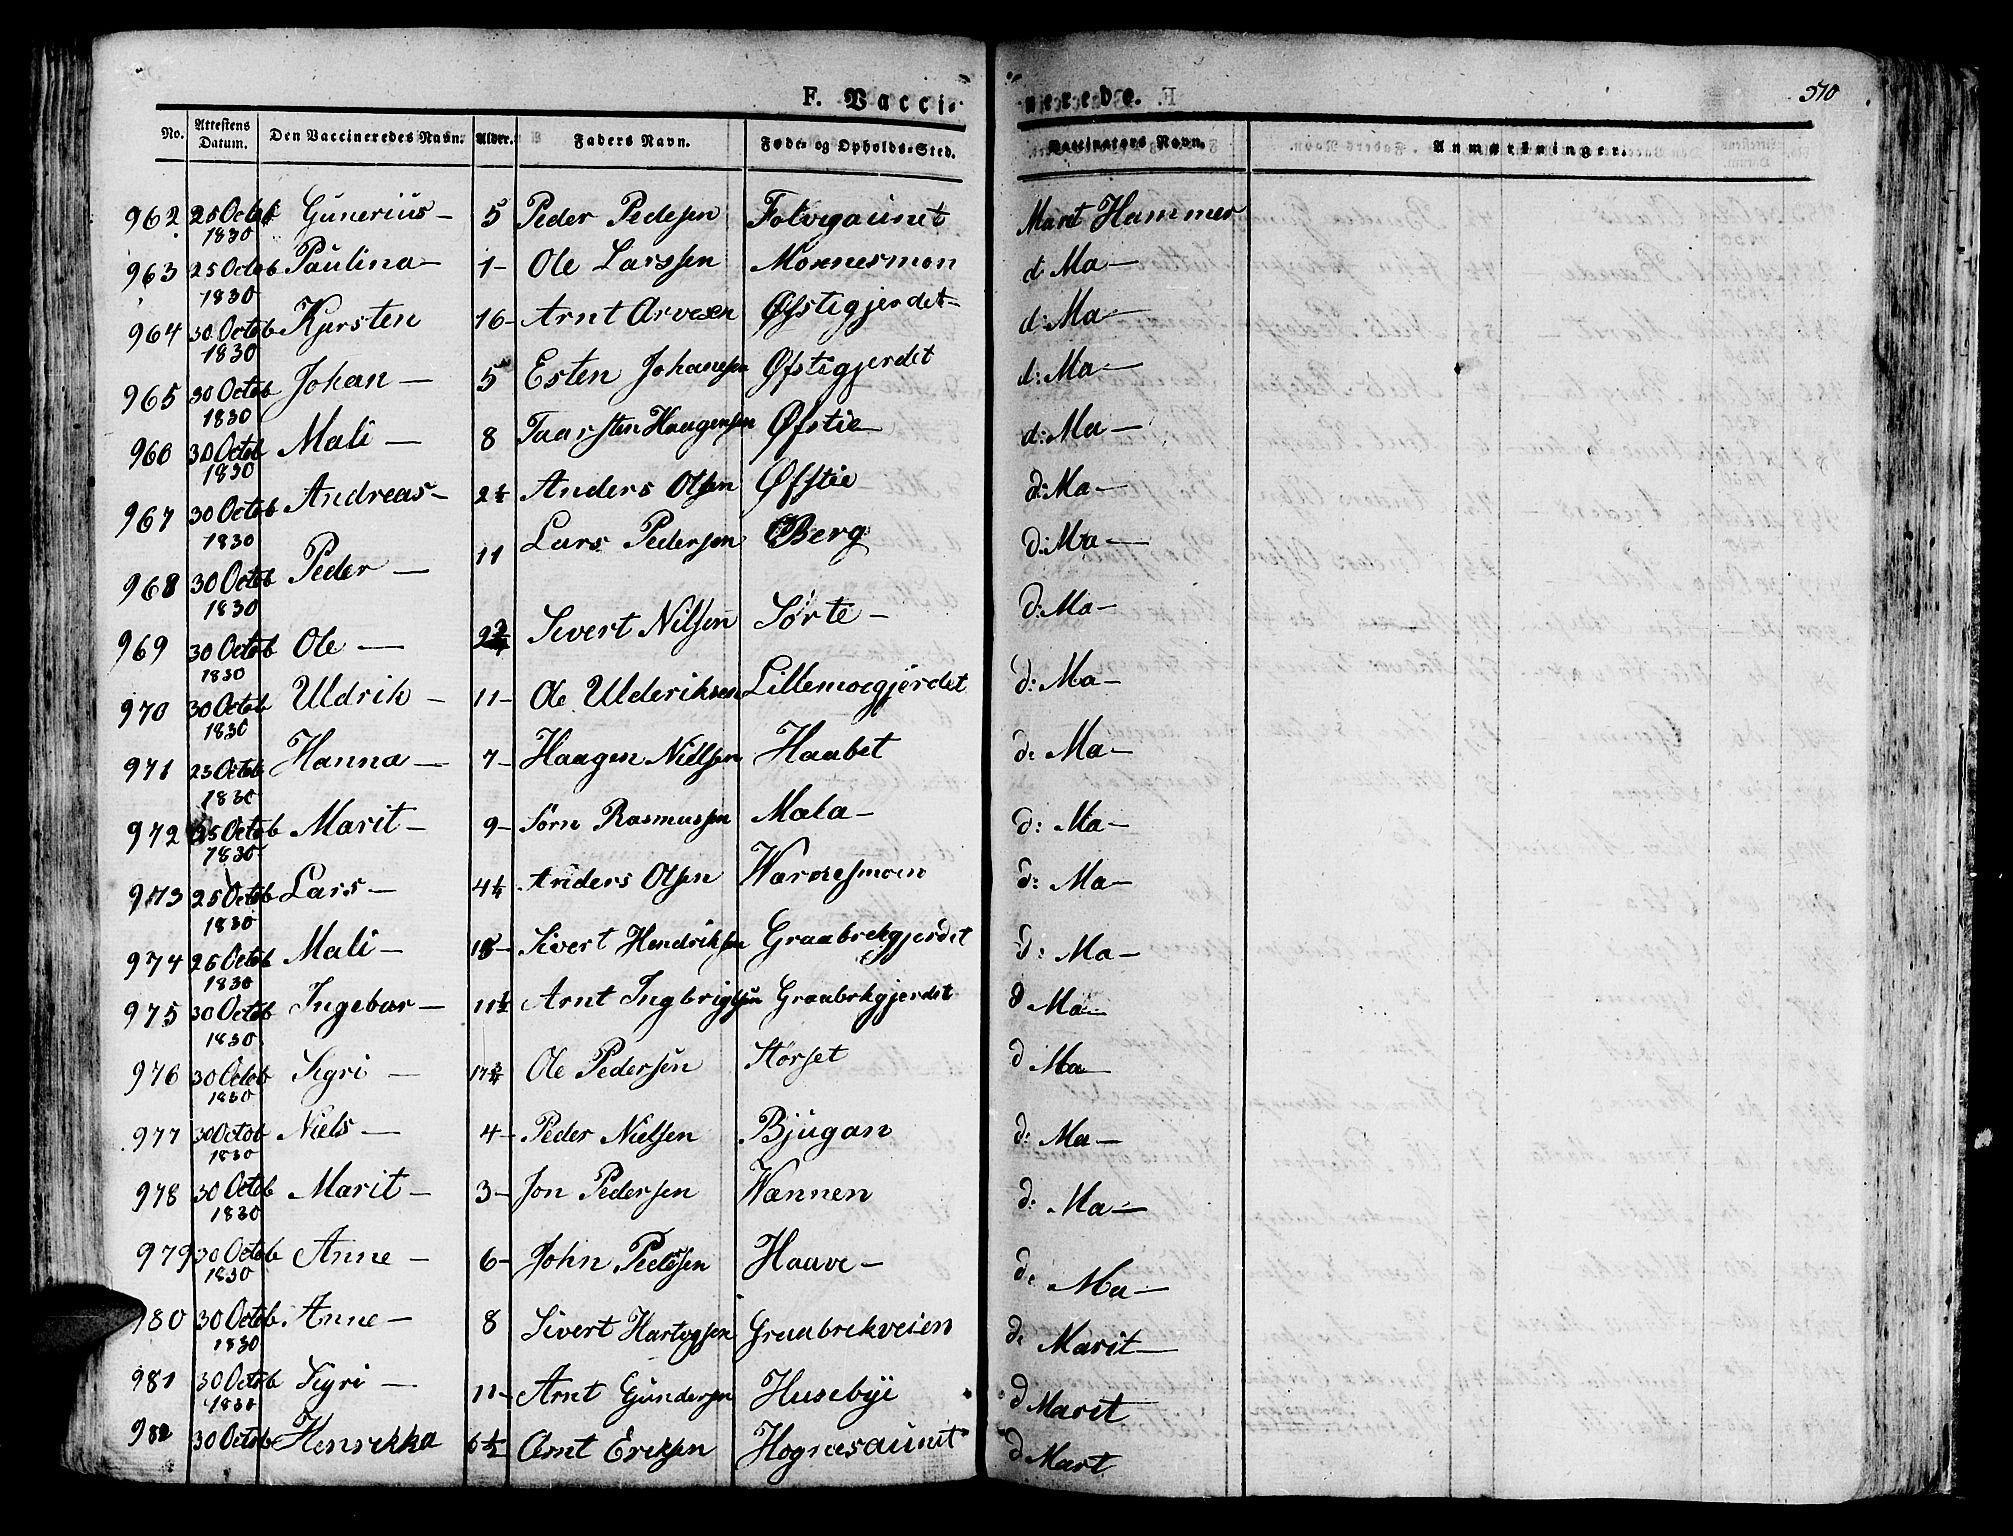 570
F. Vaccinerede.
No. Attestens Datum. Den Vaccineredes Navn. Alder. Faders Navn. Føde- og Opholds-Sted. Vaccinators Navn. Anmærkninger.
962 25 Octob 1830 Gunerius — 5 Peder Pedesen Marit Hammer
963 25 Octob 1830 Paulina — 1 — Ole Larssen Moenesmon d: Ma —
964 30 Octob 1830 Kjersten 16 — Arnt Arvesen Øfstigjerdet — d: Ma —
965 30 Octob 1830 Johan — 5 Esten Johanesen Øfstigjerdet d: Ma —
966 30 Octob 1830 Mali — 8 Taarsten Haagensen Øfstie d: Ma —
967 30 Octob 1830 Andreas — 2½ Anders Olsen Øfstie d: Ma —
968 30 Octob 1830 Peder — 11 Lars Pedersen Berg d: Ma —
969 30 Octob 1830 Ole — Sivert Nilsen Sørte — d: Ma —
970 30 Octob 1830 Uldrik — 11 — Ole Ulderiksen Lillemoegjerdet d: Ma —
971 25 Octob 1830 Hanna — 7 — Haagen Nielsen Haabet d: Ma —
972 25 Octob 1830 Marit — 9 — Sørn Rasmussen Mala — d: Ma —
973 25 Octob 1830 Lars — 4½ Anders Olsen Wærnesmoen d: Ma —
974 26 Octob 1830 Mali — 18 — Sivert Hendriksen Graabrekgjerdet d: Ma —
975 30 Octob 1830 Ingebor — 11½ Arnt Ingbrigtsen Graabrekgjerdet d Ma —
976 30 Octob 1830 Sigri — 17¾ Ole Pedersen Størset d Ma —
977 30 Octob 1830 Niels — 4 — Peder Nielsen Bjugan d: Ma —
978 30 Octob 1830 Marit — 3 — Jon Pedersen Wænnen d: Ma —
979 30 Octob 1830 Anne — 6 — John Pedersen Haave — d: Ma —
980 30 Octob 1830 Anne — 8 Sivert Hartvgsen Graabrekveien d: Marit —
981 30 Octob 1830 Sigri — 11 — Arnt Gundersen Husebye d Marit
982 30 Octob Henrikka 6½ Arnt Eriksen Hognesaunet d Marit